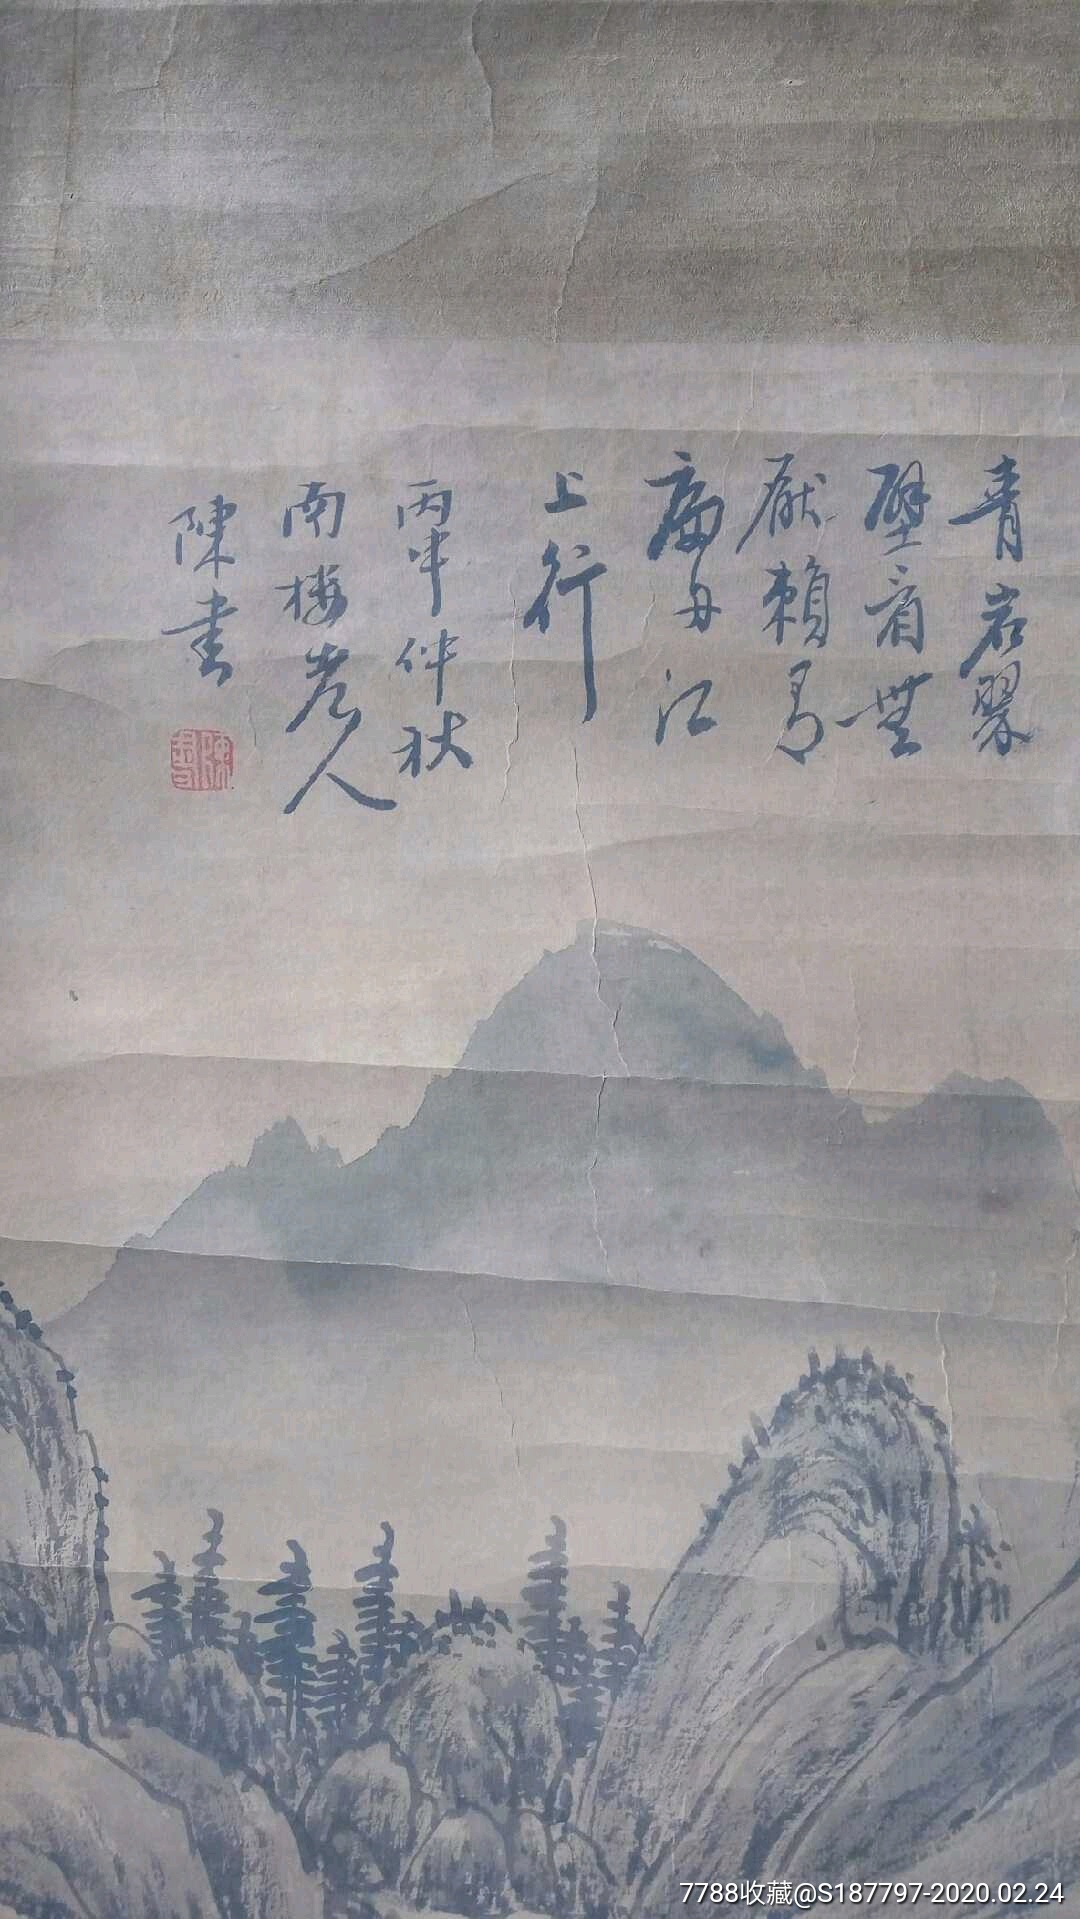 青岩翠
壁看無
厭賴有
扁舟江
上行
丙午仲秋
南樓老人
陳書
陳書
7788收藏@S187797-2020.02.24